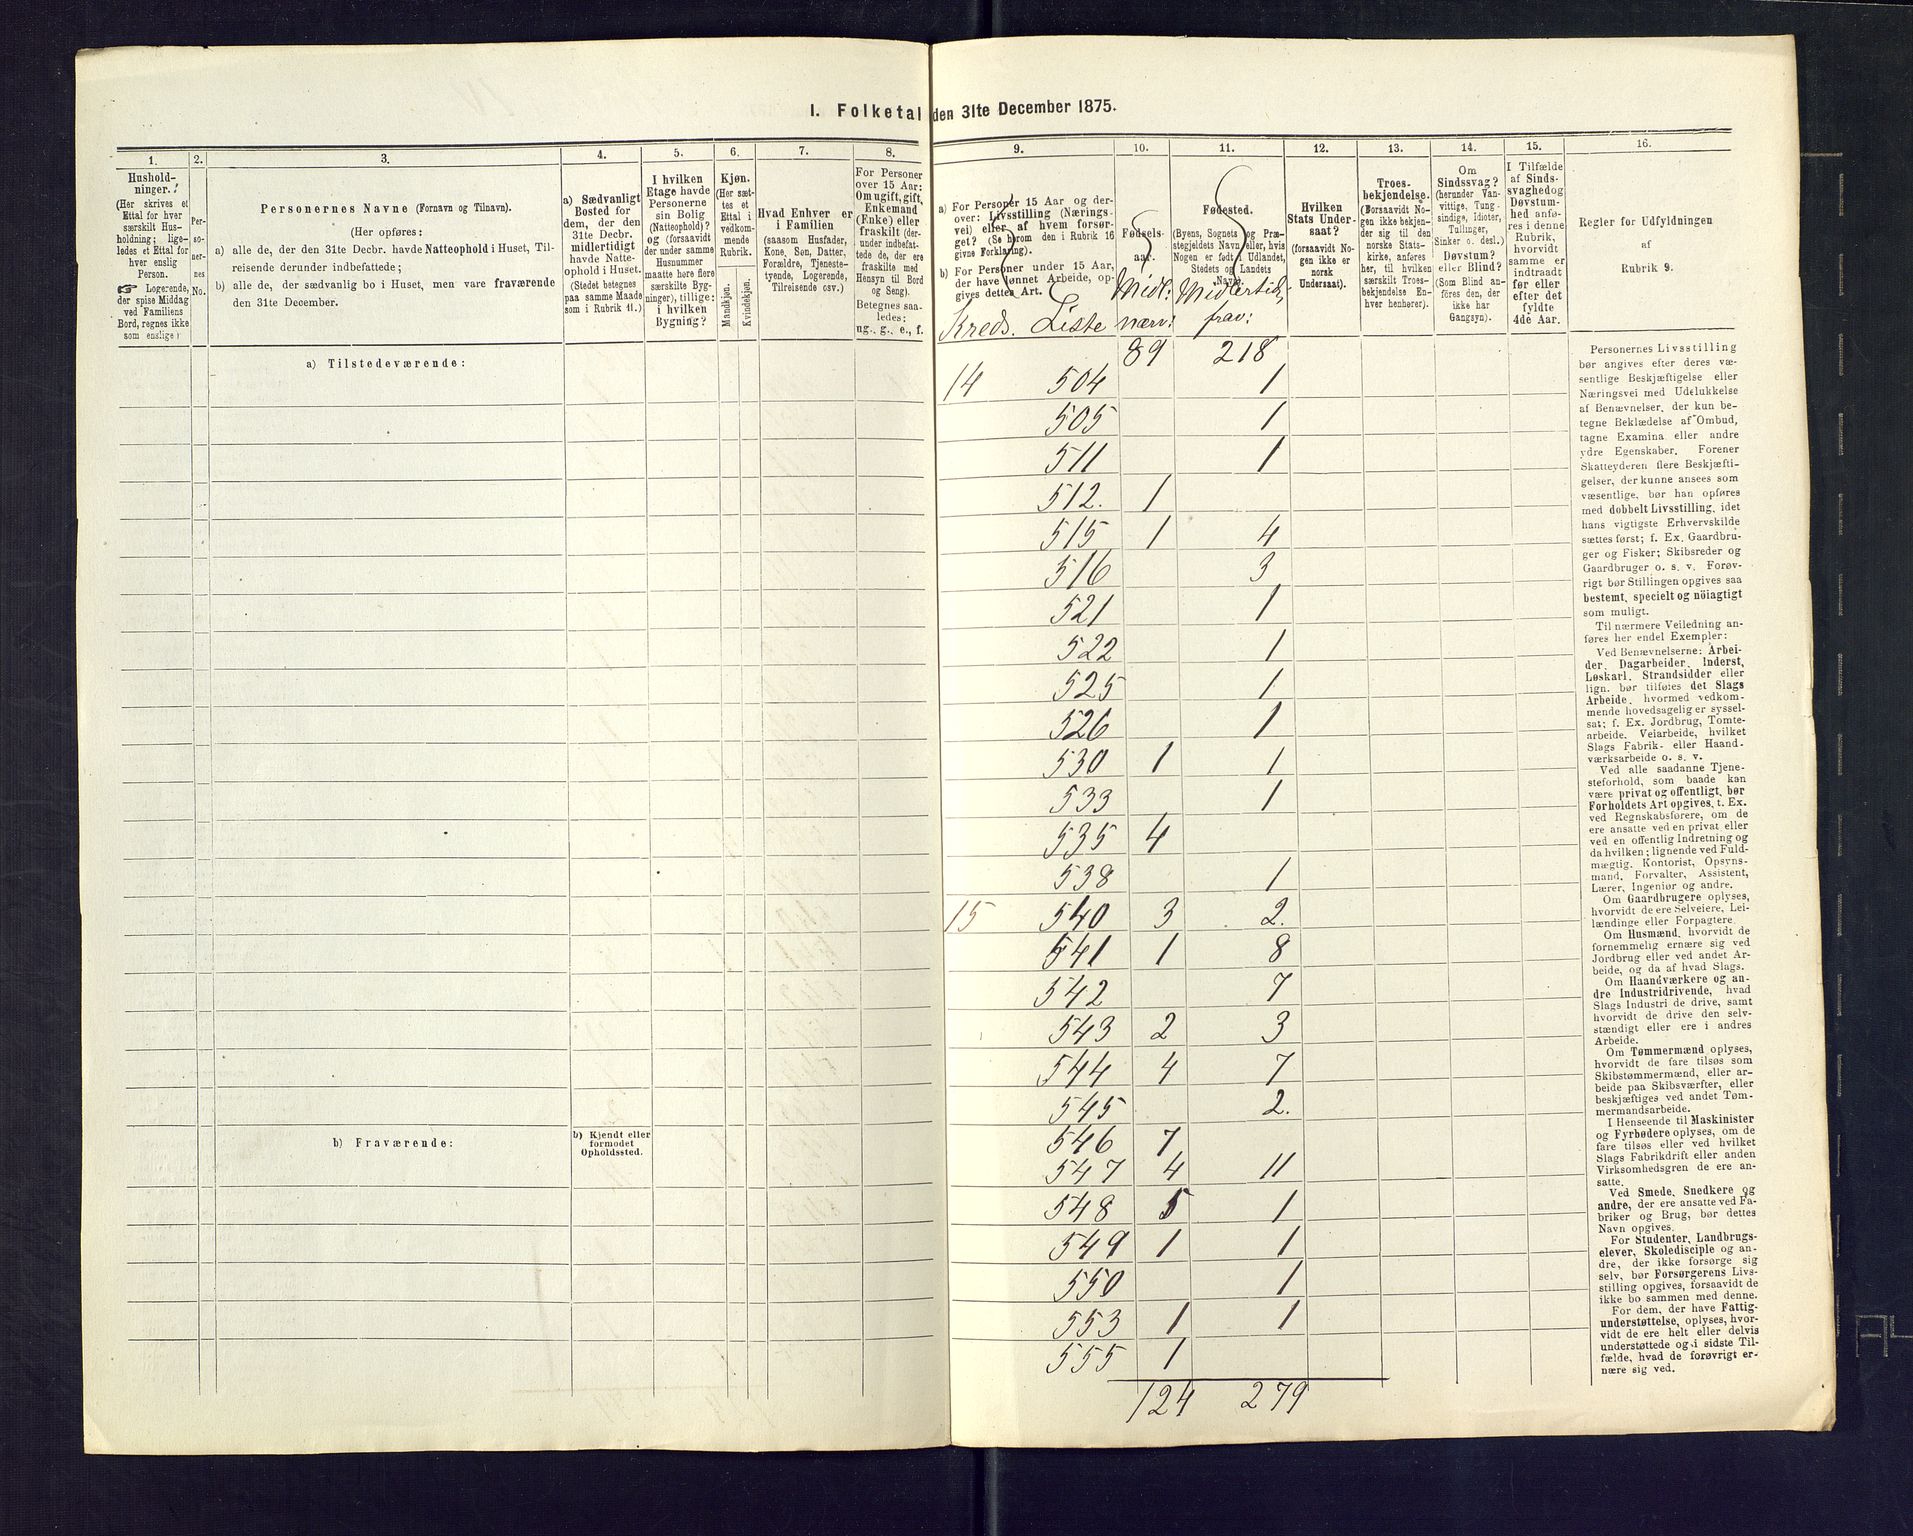 I. Folketal den 31te December 1875.
1.
2.
3.
4.
5.
6.
7.
8.
9.
10.
11.
12.
13.
14.
15.
16.
Hushold-
ninger.
(Her skrives et
Ettal for hver
særskilt Hus-
holdning; lige-
ledes et Ettal for
hver enslig
Person.
☞ Logerende,
der spise Middag
ved Familiens
Bord, regnes ikke
som enslige)
Per-
so-
ner-
nes
No.
Personernes Navne (Fornavn og Tilnavn).
(Her opføres:
a) alle de, der den 31te Decbr. havde Natteophold i Huset, Til-
reisende derunder indbefattede;
b) alle de, der sædvanlig bo i Huset, men vare fraværende
den 31te December.
a) Sædvanligt
Bosted for
dem, der den
31te Decbr.
midlertidigt
havde Natte-
ophold i Huset.
(Stedet betegnes
paa samme Maade
som i Rubrik 11.)
I hvilken
Etage havde
Personerne
sin Bolig
(Natteophold)?
og (forsaavidt
der under samme
Husnummer
maatte høre flere
særskilte Byg-
ninger), tillige:
i hvilken
Bygning?
Kjøn.
(Her sæt-
tes et
Ettal i
vedkom-
mende
Rubrik.
Mandkjøn.
Kvindekjøn.
Hvad Enhver er
i Familien
(saasom Husfader,
Kone, Søn, Datter,
Forældre, Tjeneste-
tyende, Logerende,
Tilreisende osv.)
For Personer
over 15 Aar:
Om ugift, gift,
Enkemand
(Enke) eller
fraskilt (der-
under indbefat-
tede de, der ere
fraskilte med
Hensyn til Bord
og Seng).
Betegnes saa-
ledes:
ug., g., e., f.
a) For Personer 15 Aar og der-
over: Livsstilling (Nærings-
vei) eller af hvem forsør-
get? (Se herom den i Rubrik 16
givne Forklaring).
b) For Personer under 15 Aar,
der have lønnet Arbeide, op-
gives dettes Art.
Fødsels-
aar.
Fødested.
(Byens, Sognets og Præ-
stegjeldets Navn eller, hvis
Nogen er født i Udlandet,
Stedets og Landets
Navn.
Hvilken
Stats Under-
saat?
(forsaavidt No-
gen ikke er
norsk
Undersaat).
Troes-
bekjendelse.
(Forsaavidt No-
gen ikke bekjen-
der sig til den
norske Stats-
kirke, anføres
her, til hvilken
særskilt Troes-
bekjendelse En-
hver henhører).
Om
Sindssvag?
(herunder Van-
vittige, Tung-
sindige, Idioter,
Tullinger,
Sinker o. desl.)
Døvstum?
eller Blind?
(Som Blind an-
føres den, der
ikke har
Gangsyn).
I Tilfælde
af Sinds-
svaghed og
Døvstum-
hed anfø-
res i denne
Rubrik,
hvorvidt
samme er
indtraadt
før eller
efter det
fyldte
4de Aar.
Regler for Udfyldningen
af
Rubrik 9.
Kreds. Liste Midl: nærv: Midlertid. frav:
a) Tilstedeværende:
89 218
14 504 1
505 1
511 1
512. 1
515 1 4
516 3
521 1
522 1
525 1
526 1
530 1 1
533 1
535 4
538 1
15 540 3 2.
541 1 8
542 7
543 2 3
544 4 7
545 2.
546 7
547 4 11
548 5 1
549 1 1
550 1
553 1 1
555 1
124 279
b) Fraværende:
b) Kjendt eller
formodet
Opholdssted.
Personernes Livsstilling
bør angives efter deres væ-
sentlige Beskjæftigelse eller
Næringsvei med Udelukkelse
af Benævnelser, der kun be-
tegne Beklædelse af Ombud,
tagne Examina eller andre
ydre Egenskaber. Forener
Skatteyderen flere Beskjæfti-
gelser, der kunne ansees som
væsentlige, bør han opføres
med dobbelt Livsstilling, idet
hans vigtigste Erhvervskilde
sættes først; f. Ex. Gaardbru-
ger og Fisker; Skibsreder og
Gaardbruger o. s. v. Forøv-
rigt bør Stillingen opgives saa
bestemt, specielt og nöiagtigt
som muligt.
Til nærmere Veiledning an-
føres her endel Exempler:
Ved Benævnelserne: Arbei-
der, Dagarbeider, Inderst,
Løskarl, Strandsidder eller
lign. bør tilføies det Slags
Arbeide, hvormed vedkom-
mende hovedsagelig er syssel-
sat; f. Ex. Jordbrug, Tomte-
arbeide, Veiarbeide, hvilket
Slags Fabrik- eller Haand-
værksarbeide o. s. v.
Ved alle saadanne Tjene-
steforhold, som baade kan
være privat og offentligt, bør
Forholdets Art opgives, t. Ex.
ved Regnskabsførere, om de
ere ansatte ved en privat eller
ved en offentlig Indretning og
da hvilken; lignende ved Fuld-
mægtig, Kontorist, Opsyns-
mand, Forvalter, Assistent,
Lærer, Ingeniør og andre.
Om Gaardbrugere oplyses,
hvorvidt de ere Selveiere, Lei-
lændinge eller Forpagtere.
Om Husmænd, hvorvidt de
fornemmelig ernære sig ved
Jordbrug eller ved andet Ar-
beide, og da af hvad Slags.
Om Haandværkere og an-
dre Industridrivende, hvad
Slags Industri de drive, samt
hvorvidt de drive den selv-
stændigt eller ere i andres
Arbeide.
Om Tømmermænd oplyses,
hvorvidt de fare tilsøs som
Skibstømmermænd, eller ar-
beide paa Skibsværfter, eller
beskjæftiges ved andet Tøm-
mermandsarbeide.
I Henseende til Maskinister
og Fyrbødere oplyses, om de
fare tilsøs eller ved hvilket
Slags Fabrikdrift eller anden
Virksomhedsgren de ere an-
satte.
Ved Smede, Snedkere og
andre, der ere ansatte ved Fa-
briker og Brug, bør dettes
Navn opgives.
For Studenter, Landbrugs-
elever, Skoledisciple og an-
dre, der ikke forsørge sig
selv, bør Forsørgerens Livs-
stilling opgives, forsaavidt de
ikke bo sammen med denne.
For dem, der have Fattig-
understøttelse, oplyses, hvor-
vidt de ere helt eller delvis
understøttede og i sidste Til-
fælde, hvad de forøvrigt er-
nære sig ved.